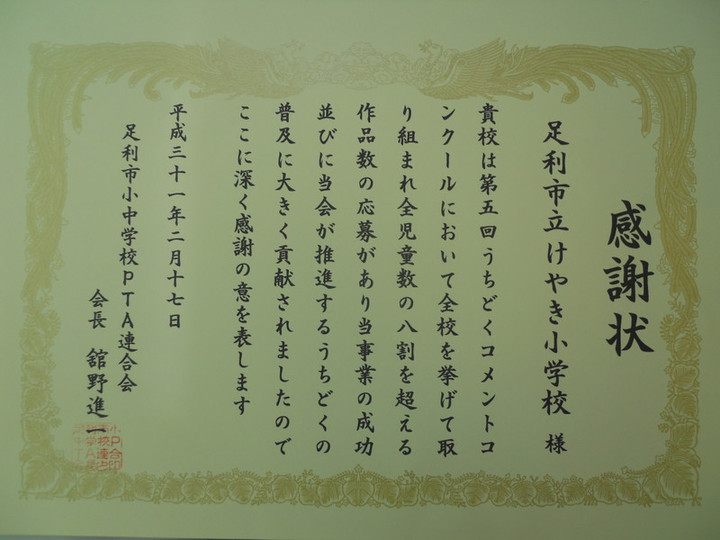 感謝状
足利市立けやき小学校 様
貴校は第五回うちどくコメントコ
ンクールにおいて全校を挙げて取
り組まれ全児童数の八割を超える
作品数の応募があり当事業の成功
並びに当会が推進するうちどくの
普及に大きく貢献されましたので
ここに深く感謝の意を表します
平成三十一年二月十七日
足利市小中学校PTA連合会
会長 舘野進一